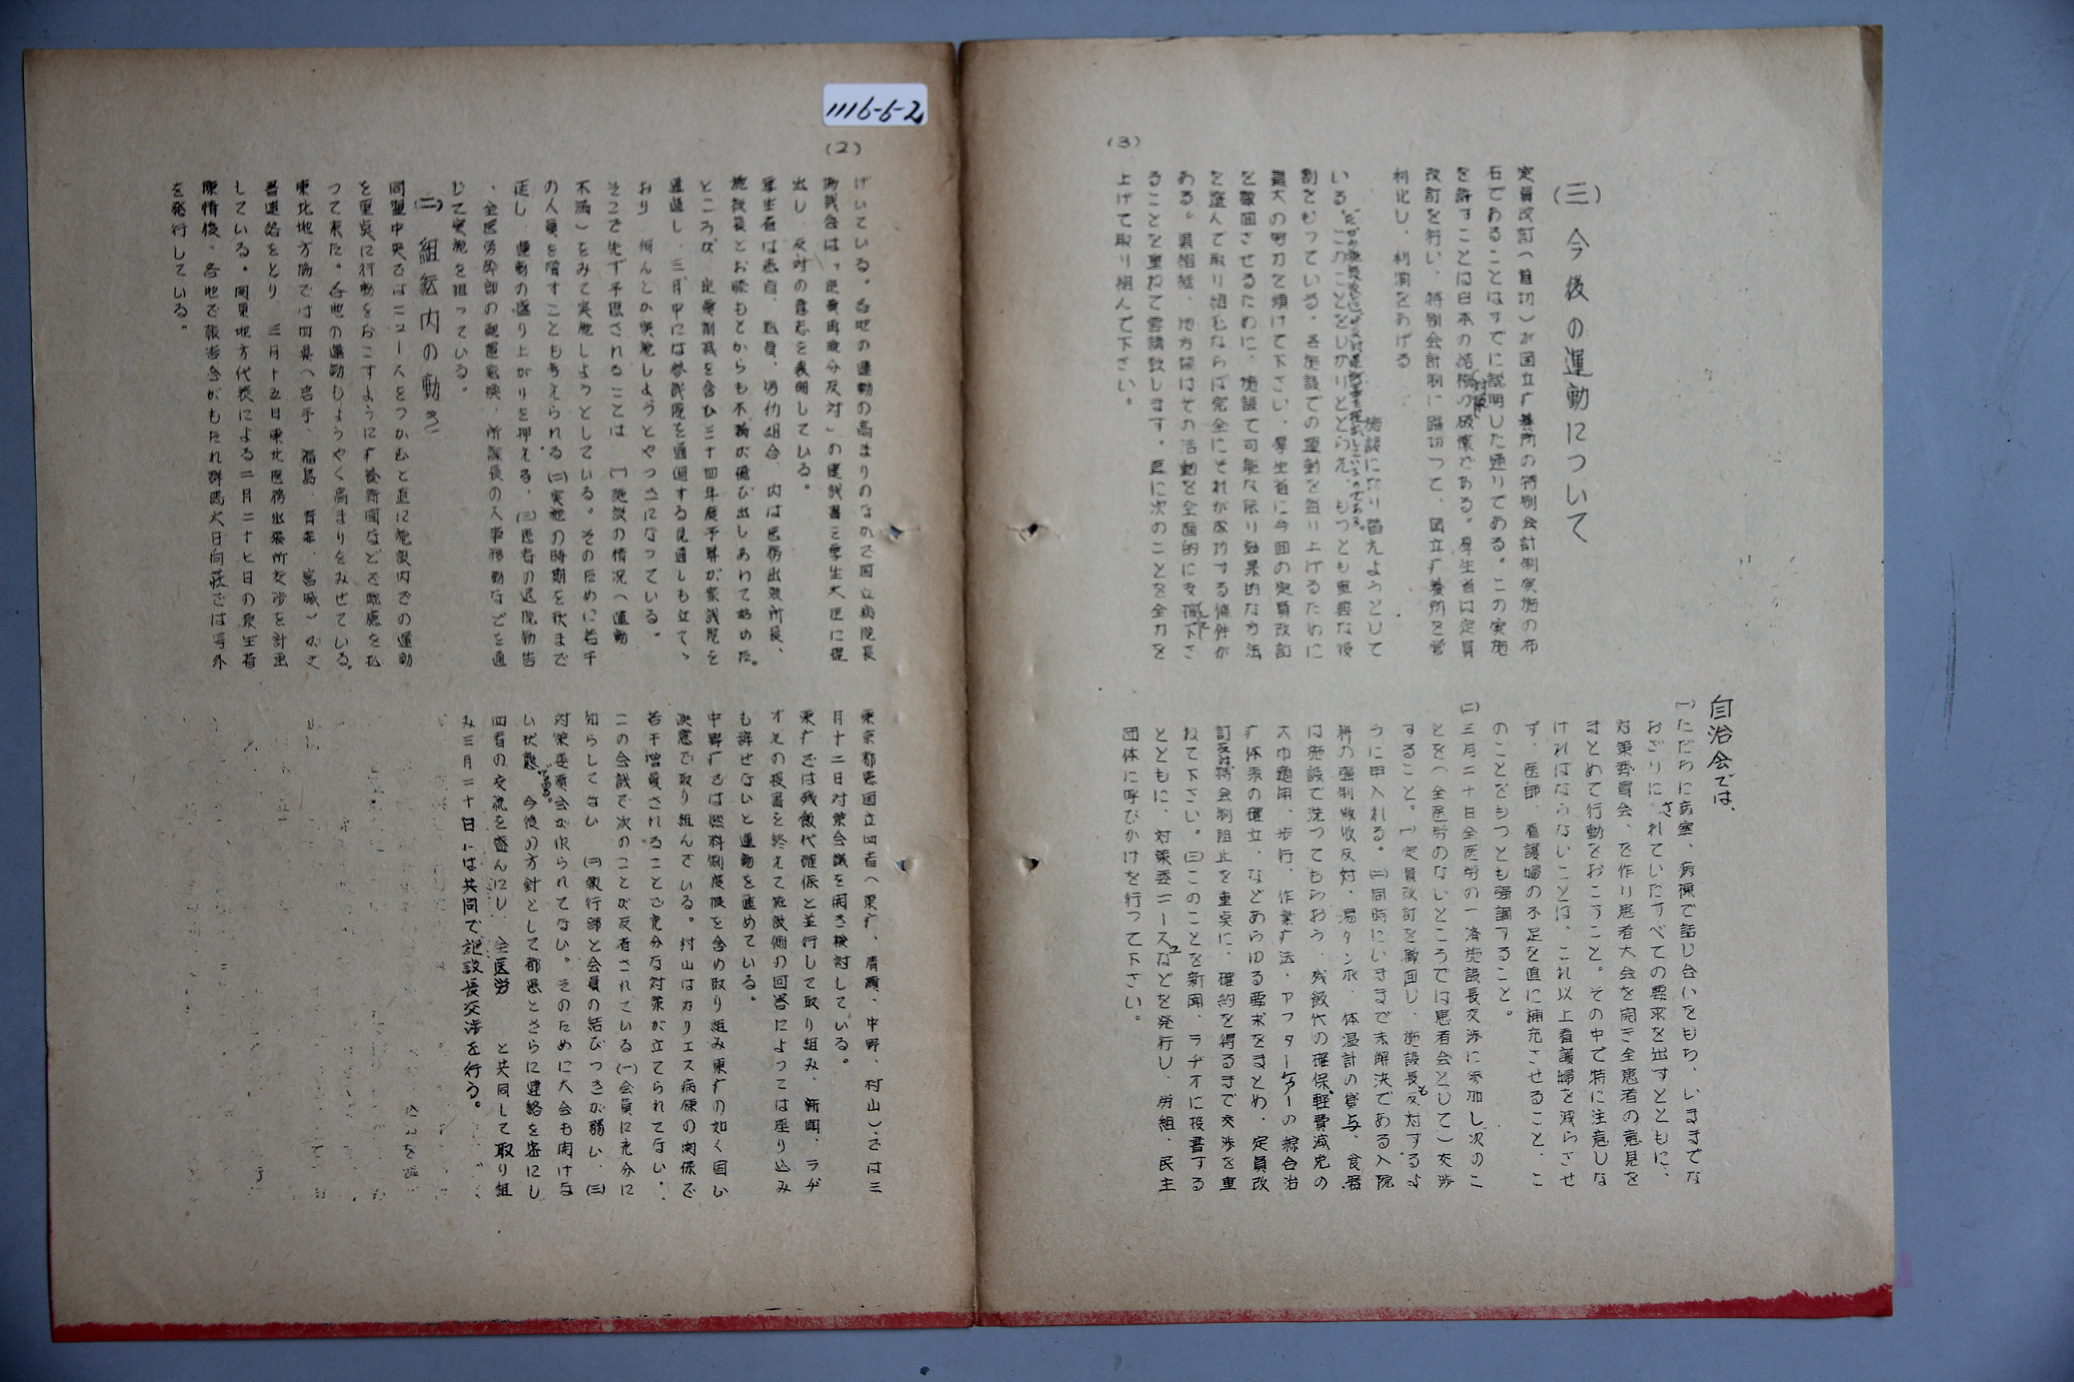 1116-6-2
(2)
げいている。各地の運動の高まりのなかで国立病院長
協議会は「定員再配分反対」の建議書を厚生大臣に提
出し、反対の意志を表明している。
厚生省は患自、職員、労仂組合、内は医務出張所長、
施設長とお膝もとからも不満が飛び出しあわて始めた。
ところが、定員削減を含む三十四年度予算が衆議院を
通過し、三月中には参議院を通過する見通しも立て、
おり、何んとか実施しようとやっきになっている。
そこで先ず予想されることは、(一)施設の情況(運動
不活)をみて実施しようとしている。そのために若干
の人員を増すことも考えられる。(二)実施の時期を秋まで
延し、運動の盛り上がりを押える、(三)患者の退院勧告
、全医労幹部の配置転換、所設長の人事移動などを通
じて実施を狙っている。
(二) 組織内の動き
同盟中央ではニュースをつかむと直に施設内での運動
を重点に行動をおこすように療養所間などで配慮を払
って来た。各地の運動もようやく高まりをみせている。
東北地方協では四県(岩手、福島、青森、宮城)が文
書連絡をとり、三月十五日東北医務出張所交渉を計画
している。関東地方代表による二月二十七日の厚生省
陳情後、各地で報告会がもたれ群馬大日向荘では号外
を発行している。
東京都患国立四者(東療、清瀬、中野、村山)では三
月十二日対策会議を開き検討している。
東療では残飯代確保と並行して取り組み、新聞、ラヂ
オえの投書を終えて施設側の回答によっては座り込み
も辞せないと運動を進めている。
中野療では燃料制度廃を含め取り組み東療の如く固い
決意で取り組んでいる。村山はカリエス病床の関係で
若干増員されることで充分な対策が立てられてない。
この会議で次のことが反省されている(一)会員に充分に
知らしてない (二)執行部と会員の結びつきが弱い、(三)
対策委員会が作られてない。そのために大会も開けな
い状態である。今後の方針として都患とさらに連絡を密にし
四者の交流を盛んにし、全医労 と共同して取り組
み三月二十日には共同で施設長交渉を行う。
(3)
(三)今後の運動について
定員改訂(首切)が国立療養所の特別会計制実施の布
石であることはすでに説明した通りである。この実施
を許すことは日本の結核対策の破壊である。厚生省は定員
改訂を行い、特別会計制に踏切って、国立療養所を営
利化し、利潤をあげる
施設に切り替えようとして
いる。このことをしっかりととらえ、もっとも重要な役
割をもっている。各施設での運動を盛り上げるために
最大の努力を傾けて下さい。厚生省に今回の定員改訂
を撤回させるために、施設で可能な限り効果的な方法
を選んで取り組むならば完全にそれが成功する条件が
ある。県組織、地方協はその活動を全面的に支援して下さ
ることを重ねて要請致します。直に次のことを全力を
上げて取り組んで下さい。
自治会では、
(一)ただちに病室、病棟で話し合いをもち、いままでな
おざりにされていたすべての要求を出すとともに、
対策委員会、を作り患者大会を開き全患者の意見を
まとめて行動をおこすこと。その中で特に注意しな
ければならないことは、これ以上看護婦を減らさせ
ず、医師、看護婦の不足を直に補充させること、こ
のことをもっとも強調すること。
(二)三月二十日全医労の一済施設長交渉に参加し次のこ
とを(全医労のないところでは患者会として)交渉
すること。(一)定員改訂を撤回し、施設長も反対するよ
うに申入れる。(二)同時にいままで未解決である入院
料の強制徴収反対、湯タンポ、体温計の貸与、食器
は施設で洗ってもらおう、残飯代の確保、軽費減免の
大巾適用、歩行、作業療法、アフターケアーの綜合治
療体系の確立、などあらゆる要求をまとめ、定員改
訂反対、特会制阻止を重点に、確約を得るまで交渉を重
ねて下さい。(三)このことを新聞、ラヂオに投書する
とともに、対策委ニュースなどを発行し、労組、民主
団体に呼びかけを行って下さい。